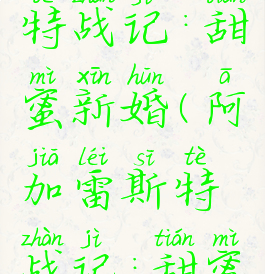 特战记:甜
mì xīn hūn ā
蜜新婚(阿
jiā léi sī tè
加雷斯特
zhàn jì tián mì
战记:甜蜜